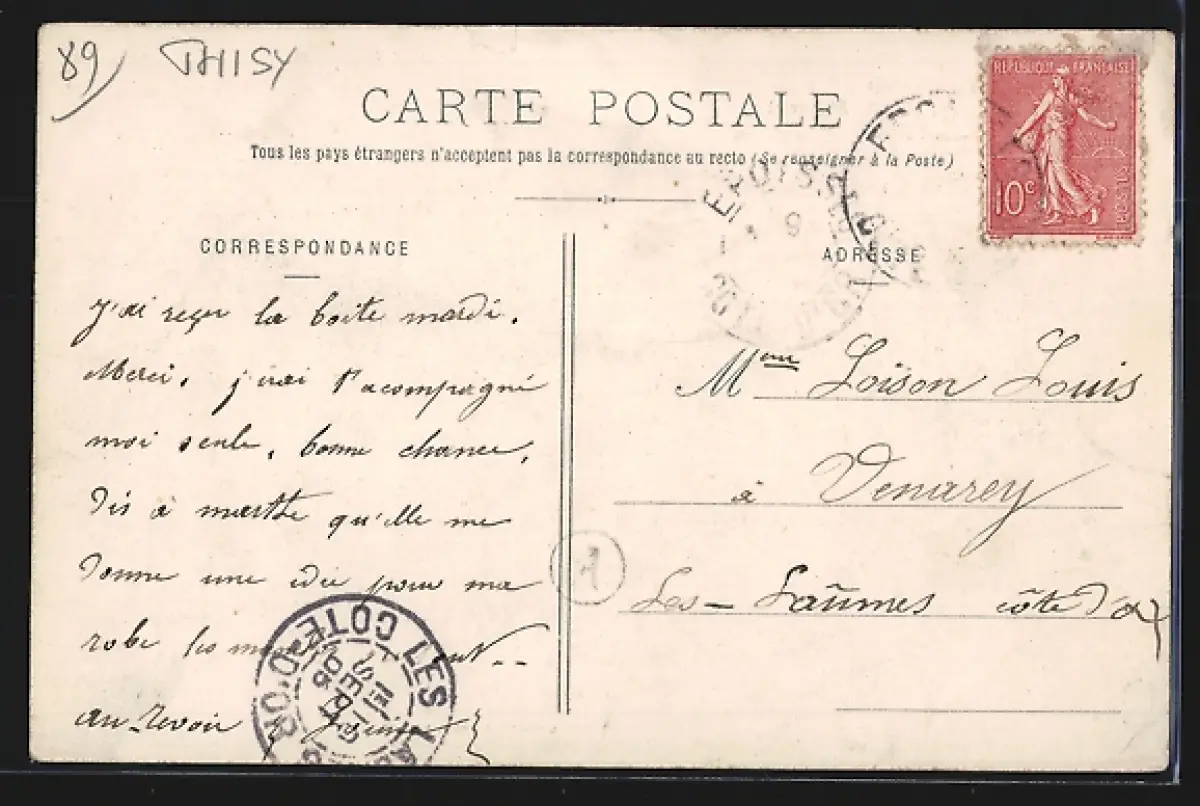 89 THISY
CARTE POSTALE
Tous les pays étrangers n'acceptent pas la correspondance au recto (Se renseigner à la Poste)
REPUBLIQUE FRANÇAISE
10c
POSTES
EPOISSES
CORRESPONDANCE
J'ai reçu la boite mardi.
Merci. j'irai t'acompagné
moi seule, bonne chance,
Dis à marthe qu'elle me
donne une idée pour ma
robe les
au-revoir
ADRESSE
Mme Loison Louis
à Venarey
Les-Laûmes côte d'or
A
LES LAUMES COTE-D'OR